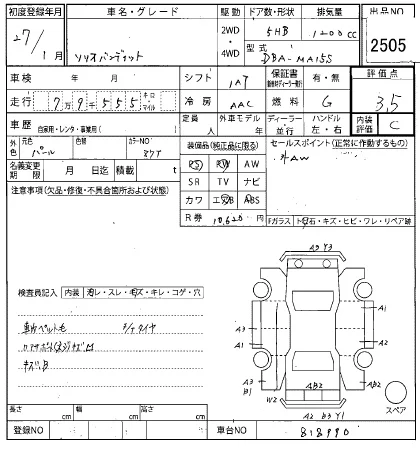 初度登録年月 車名・グレード 駆動 ドア数・形状 排気量 出品NO
27年 1月 ソリオバンディット 2WD 5HB 1200cc 2505
4WD 型式 DBA-MA15S
車検 年 月 シフト 1AT 保証書 有・無 評価点
走行 7万9千555 キロ マイル 冷房 AAC 燃料 G 3.5
車歴 自家用・レンタ・事業用( ) 定員 人 外車モデル 年 ディーラー 並行 ハンドル 左・右 内装評価 C
外色 元色 パール 色替 カラーNO ZVY
装備品(純正品に限る) セールスポイント(正常に作動するもの)
名義変更期限 月 日迄 積載 t
PS PW AW 外AW
注意事項(欠品・修復・不具合箇所および状態)
SR TV ナビ
カワ エアB ABS
R券 10,620
Fガラス ト石・キズ・ヒビ・ワレ・リペア跡
A2 Y3
検査員記入 内装 汚レ・スレ・キズ・キレ・コゲ・穴
A3 A1
車内ペット毛 シートタイヤ
A3 A2
キズ、B
A3 B1 AB2 AB2
W2 スペア
A2 B3 Y1
長さ cm 幅 cm 高さ cm
登録NO 車台NO 818990